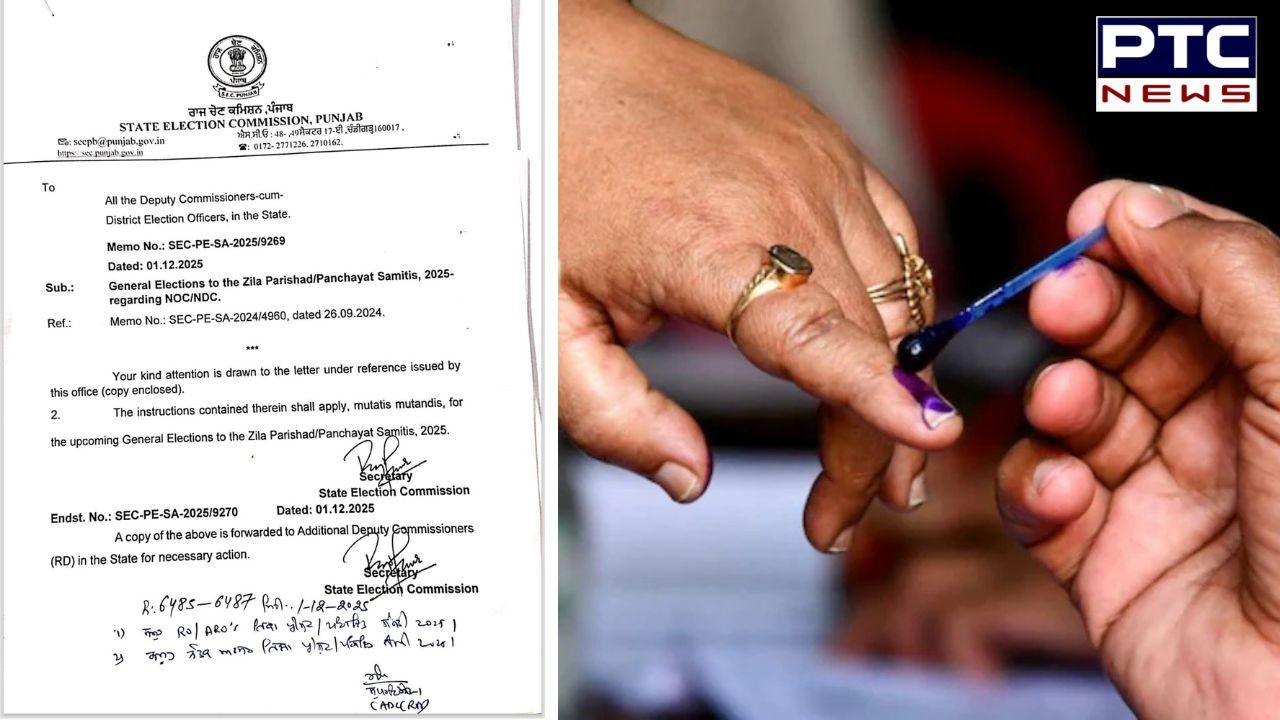 ਰਾਜ ਚੋਣ ਕਮਿਸ਼ਨ ,ਪੰਜਾਬ
STATE ELECTION COMMISSION, PUNJAB
ਐਸ.ਸੀ.ਓ : 48- ,49ਸੈਕਟਰ 17-ਈ ,ਚੰਡੀਗੜ੍ਹ160017 ,
: secpb@punjab.gov.in
☎: 0172- 2771226, 2710162.
https: sec.punjab.gov.in
To
All the Deputy Commissioners-cum-
District Election Officers, in the State.
Memo No.: SEC-PE-SA-2025/9269
Dated: 01.12.2025
Sub.: General Elections to the Zila Parishad/Panchayat Samitis, 2025-
regarding NOC/NDC.
Ref.: Memo No.: SEC-PE-SA-2024/4960, dated 26.09.2024.
***
Your kind attention is drawn to the letter under reference issued by
this office (copy enclosed).
2. The instructions contained therein shall apply, mutatis mutandis, for
the upcoming General Elections to the Zila Parishad/Panchayat Samitis, 2025.
Secretary
State Election Commission
Endst. No.: SEC-PE-SA-2025/9270 Dated: 01.12.2025
A copy of the above is forwarded to Additional Deputy Commissioners
(RD) in the State for necessary action.
Secretary
State Election Commission
6485-6487 ਮਿਤੀ.. 1-12-2025
1) RO/ARO's
PTC
NEWS